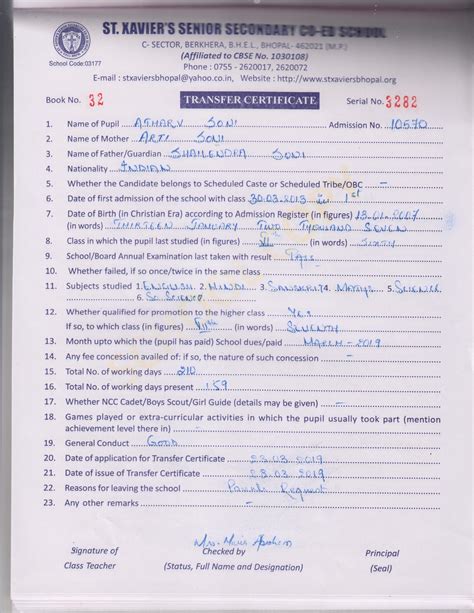 ST. XAVIER'S SENIOR SECONDARY CO-ED SCHOOL
C- SECTOR, BERKHERA, B.H.E.L., BHOPAL- 462021 (M.P.)
(Affiliated to CBSE No. 1030108)
School Code:03177
Phone : 0755 - 2620017, 2620072
E-mail : stxaviersbhopal@yahoo.co.in, Website : http://www.stxaviersbhopal.org
Book No. 32 TRANSFER CERTIFICATE Serial No. 3282
1. Name of Pupil ATHARV SONI Admission No. 10570
2. Name of Mother ARTI SONI
3. Name of Father/Guardian SHAILENDRA SONI
4. Nationality INDIAN
5. Whether the Candidate belongs to Scheduled Caste or Scheduled Tribe/OBC —
6. Date of first admission of the school with class 30.03.2013 in 1st
7. Date of Birth (in Christian Era) according to Admission Register (in figures) 13.01.2007
(in words) THIRTEEN JANUARY TWO THOUSAND SEVEN
8. Class in which the pupil last studied (in figures) VI th (in words) SIXTH
9. School/Board Annual Examination last taken with result PASS
10. Whether failed, if so once/twice in the same class
11. Subjects studied 1. ENGLISH 2. HINDI 3. SANSKRIT 4. MATHS 5. SCIENCE
6. SO. SCIENCE
12. Whether qualified for promotion to the higher class YES
If so, to which class (in figures) VII th (in words) SEVENTH
13. Month upto which the (pupil has paid) School dues/paid MARCH - 2019
14. Any fee concession availed of: if so, the nature of such concession —
15. Total No. of working days 210
16. Total No. of working days present 159
17. Whether NCC Cadet/Boys Scout/Girl Guide (details may be given) —
18. Games played or extra-curricular activities in which the pupil usually took part (mention
achievement level there in) —
19. General Conduct GOOD
20. Date of application for Transfer Certificate 23.03.2019
21. Date of issue of Transfer Certificate 23.03.2019
22. Reasons for leaving the school Parents Request
23. Any other remarks —
Signature of Checked by Principal
Class Teacher (Status, Full Name and Designation) (Seal)